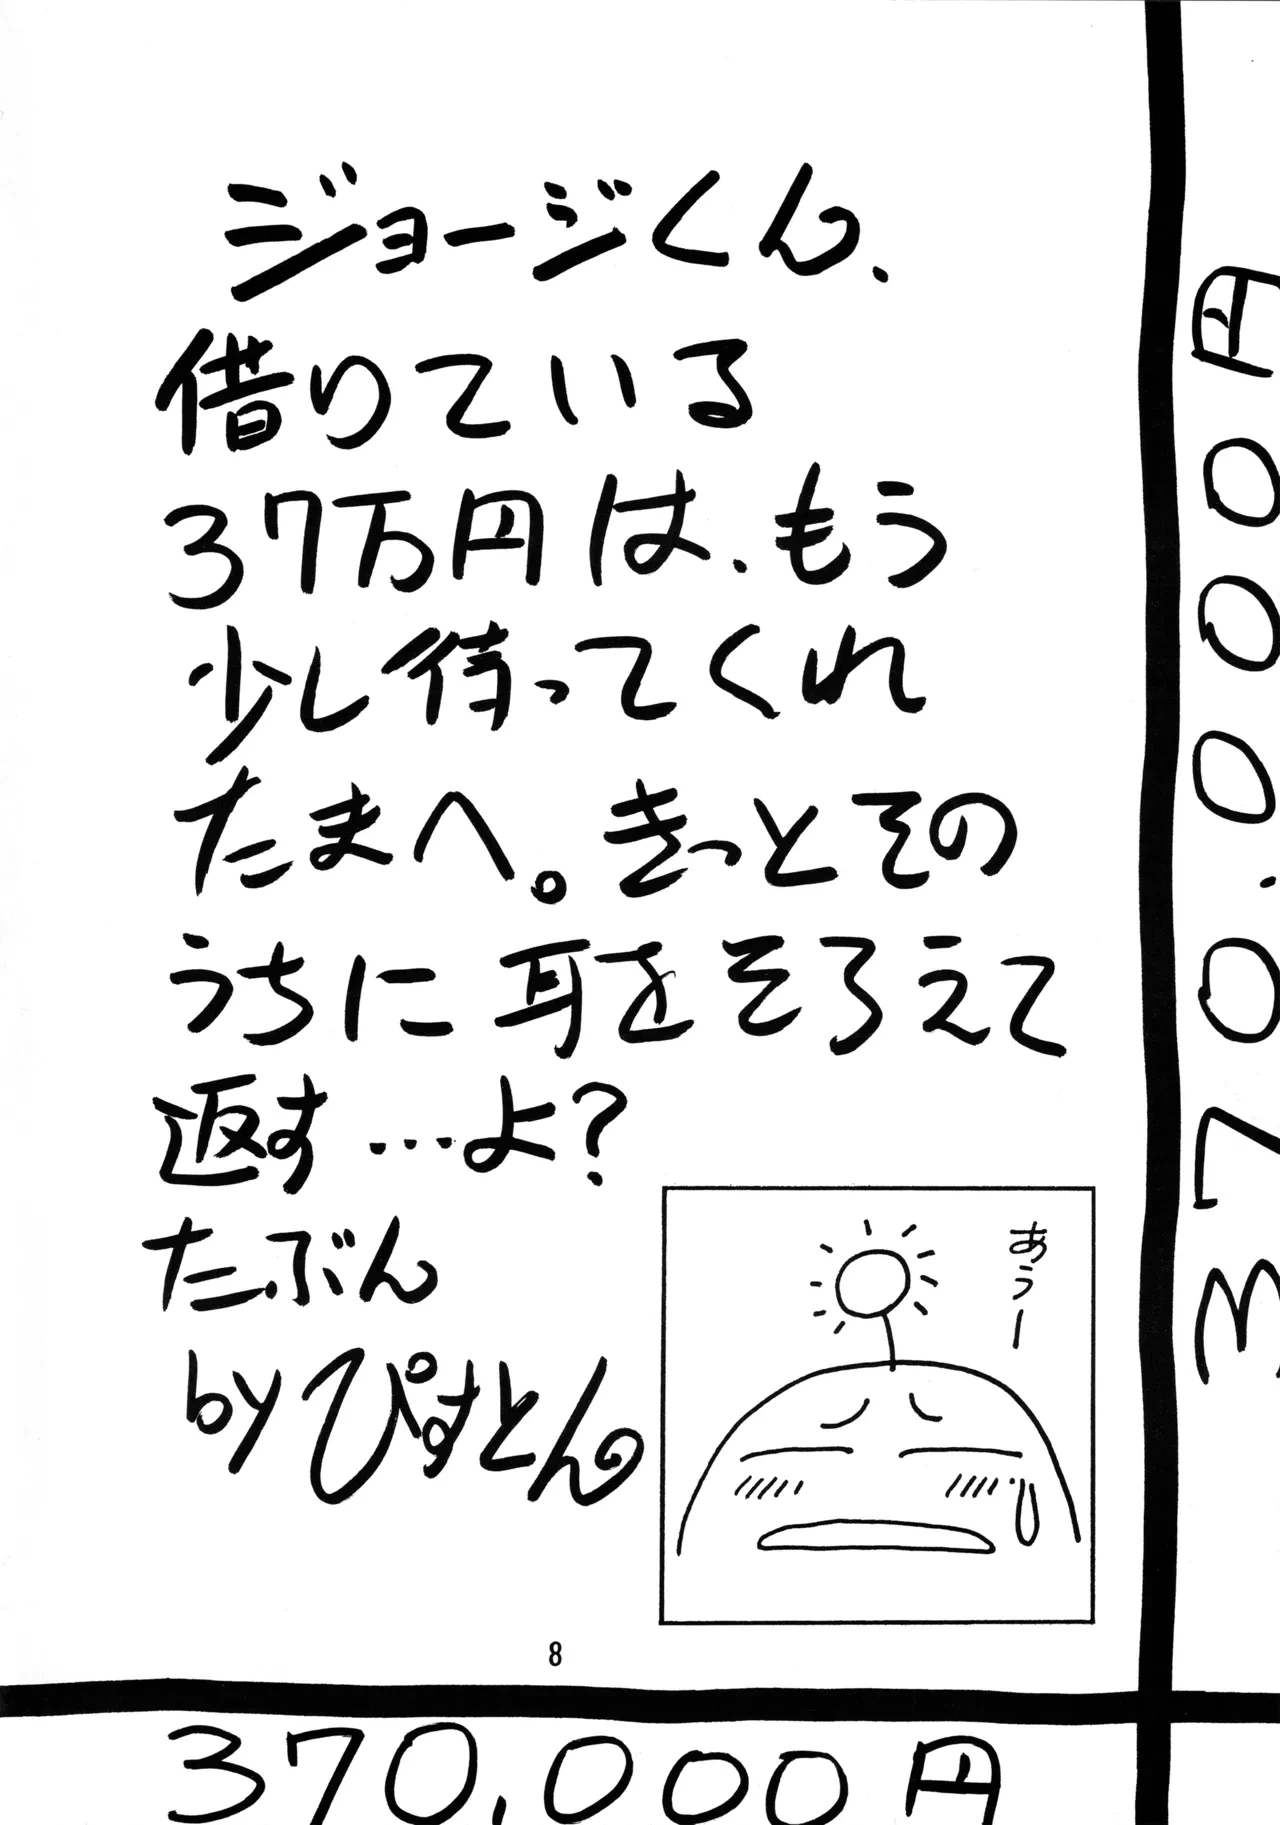 ジョージくん、
借りている
37万円は、もう
少し待ってくれ
たまへ。きっとその
うちに耳をそろえて
返す…よ?
たぶん
byぴすとん
あうー
8
370,000円
370,000円